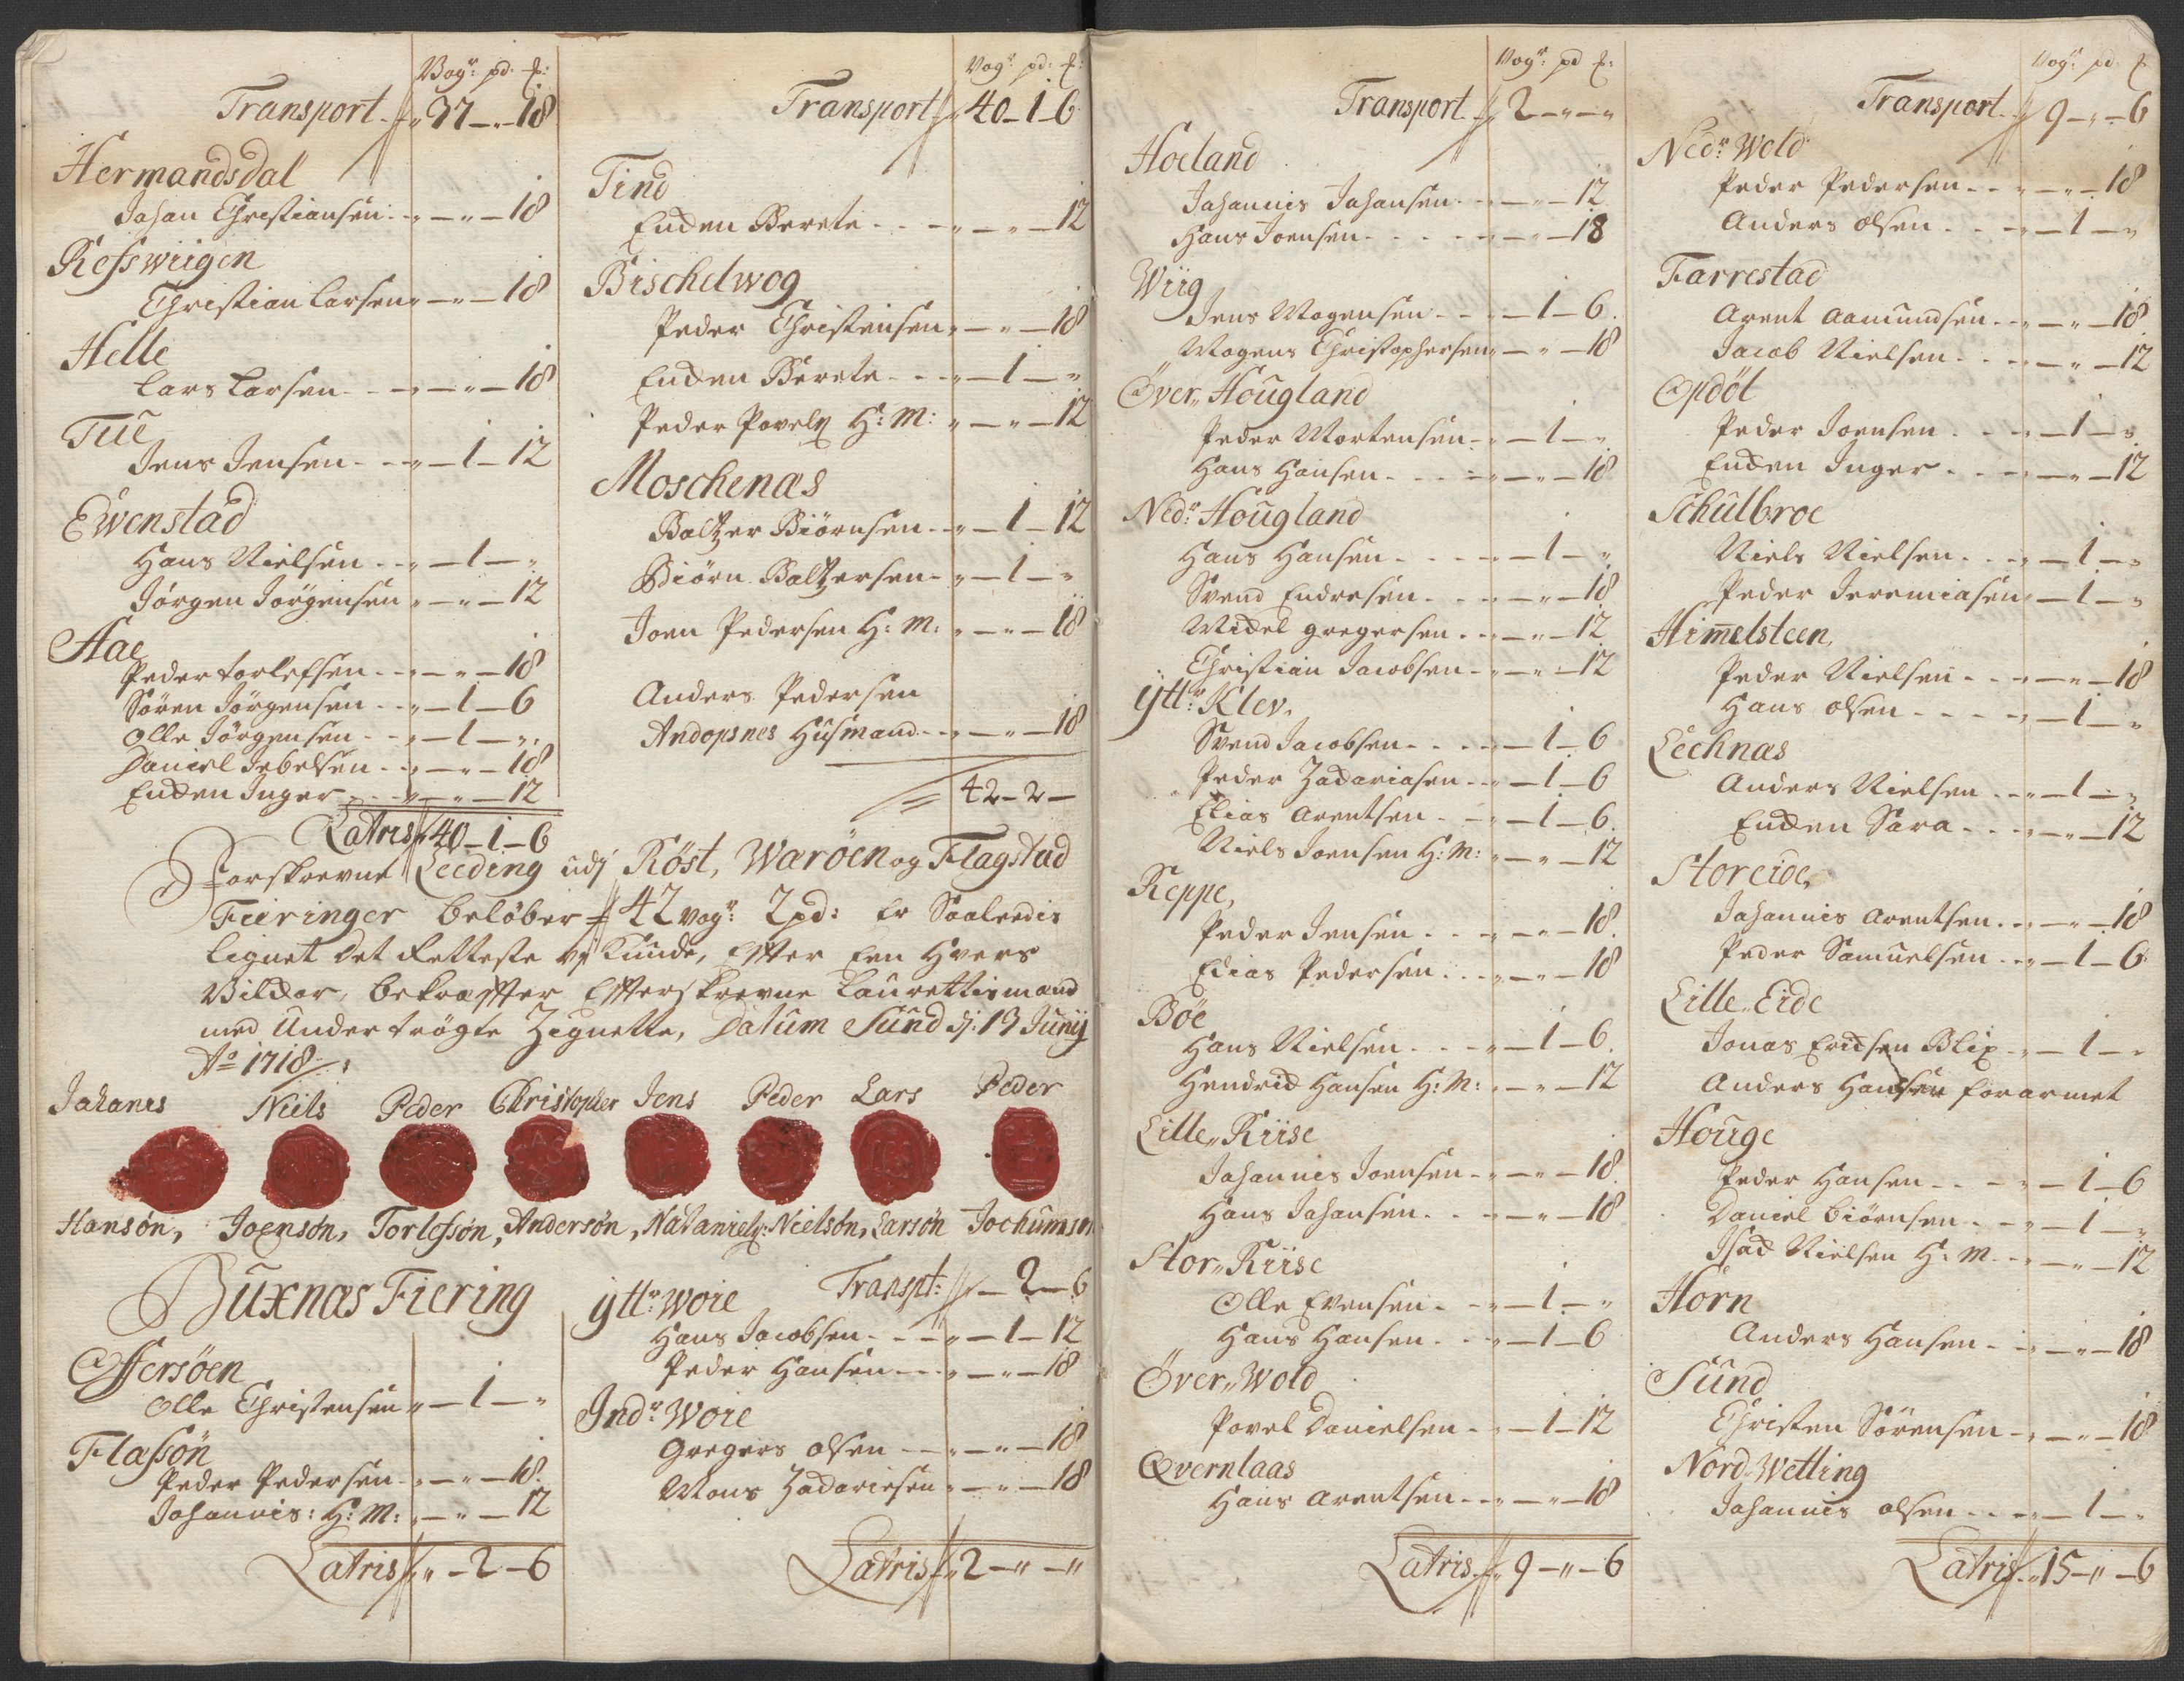 Vogr: pd: ℔:
Transport - 37 - " - 18
Hermandsdal
Johan Christiansen - " - " - 18
Refswiigen
Christian Larsen " - " - 18
Helle
Lars Larsen - " - " - 18
Tue
Jens Jensen - " - 1 - 12
Ewenstad
Hans Nielsen - " - 1 - "
Jörgen Jörgensen " - " - 12
Aae
Peder Torlefsen - " - " - 18
Sören Jörgensen - " - 1 - 6
Olle Jörgensen - " - 1 - "
Daniel Jebelsen - " - " - 18
Encken Inger - " - " - 12
Latris 40 - 1 - 6
Vogr: pd: ℔:
Transport 40 - 1 - 6
Tind
Encken Berete - " - " - 12
Bischelwog
Peder Christensen " - " - 18
Encken Berete - " - 1 - "
Peder Povels H: M: " - " - 12
Moschenæs
Baltzer Biörnsen - " - 1 - 12
Biörn Baltzersen - " - 1 - "
Joen Pedersen H: M: " - " - 18
Anders Pedersen
Andopsnes Husmand - " - " - 18
42 - 2 -
Forskrevne Leeding udj Röst, Waröen og Flagstad
Fieringer belöber 42 vogr: 2 pd: er Saaledis
lignet det Retteste vj Kunde, Efter Een Hvers
Vilckor, bekræfter Efterskrevne Laurettismænd
med Undertrögte Zignette, Datum Sund dj: 13 Junij
Ao 1718
Johanes Niels Peder Christopher Jens Peder Lars Peder
Hansön, Joensön, Torlefsön, Andersön, Nataniels: Nielsön, Larsön Jochumsön
Buxnæs Fiering
Offersöen
Olle Christensen " - 1 - "
Flasön
Peder Pedersen - " - " - 18
Johannis: H: M: " - " - 12
Latris " - 2 - 6
Transpt: " - 2 - 6
ÿttr: Woie
Hans Jacobsen - " - 1 - 12
Peder Hansen - " - " - 18
Indr: Woie
Gregers Olsen - " - " - 18
Mons Zachariesen " - " - 18
Latris 2 - " - "
Vogr: pd ℔:
Transport 2 - " - "
Hoeland
Johannis Johansen - " - " - 12
Hans Joensen - " - " - 18
Wiig
Jens Mogensen - " - 1 - 6
Mogens Christophersen " - " - 18
Över, Hougland
Peder Mortensen - " - 1 - "
Hans Hansen - " - " - 18
Nedr: Hougland
Hans Hansen - " - 1 - "
Svend Endresen - " - " - 18
Mickel Gregersen - " - " - 12
Christian Jacobsen - " - " - 12
ÿttr: Klev,
Svend Jacobsen - " - 1 - 6
Peder Zachariasen - " - 1 - 6
Elias Arentsen - " - 1 - 6
Niels Joensen H: M: " - " - 12
Reppe,
Peder Jensen - " - " - 18
Elias Pedersen - " - " - 18
Böe
Hans Nielsen - " - 1 - 6
Hendrich Hansen H: M: " - " - 12
Lille, Riise
Johannes Joensen - " - " - 18
Hans Johansen - " - " - 18
Stor, Riise
Olle Evensen - " - 1 - "
Hans Hansen - " - 1 - 6
Över, Wold
Povel Danielsen - " - 1 - 12
Qvernlaas
Hans Arentsen - " - " - 18
Latris 9 - " - 6
Vogr: pd ℔
Transport 9 - " - 6
Nedr: Wold
Peder Pedersen - " - " - 18
Anders Olsen - " - 1 - "
Farrestad
Arent Aamundsen - " - " - 18
Jacob Nielsen - " - " - 12
Opdöl
Peder Joensen - " - 1 - "
Encken Inger - " - " - 12
Schulbroe
Niels Nielsen - " - 1 - "
Peder Jeremiasen " - 1 - "
Himelsteen,
Peder Nielsen - " - " - 18
Hans Olsen - " - 1 - "
Lechnæs
Anders Nielsen - " - 1 - "
Encken Sara - " - " - 12
Storeide,
Johannis Arentsen - " - " - 18
Peder Samuelsen - " - 1 - 6
Lille, Eide
Jonas Erichsen Blix - " - 1 - "
Anders Hansen forarmet
Houge
Peder Hansen - " - 1 - 6
Daniel Biörnsen - " - 1 - "
Isach Nielsen H: M - " - " - 12
Horn
Anders Hansen - " - " - 18
Sund
Christen Sörensen - " - " - 18
Nord, Wetting
Johannis Olsen - " - 1 - "
Latris 15 - " - 6